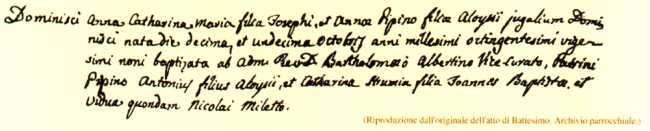 Dominisci Anna Catharina Maria filia Josephi, et Annæ Pipino filiæ Aloysii jugalium Domi
nisci nata die decima, et undecima Octobris anni millesimi octingentesimi vige
simi noni baptizata ab Adm Revdo Bartholomæo Albertino Vice Curato, Patrini
Pipino Antonius filius Aloysii, et Catharina Strumia filia Joannis Baptistæ, et
Vidua quondam Nicolai Miletto.
(Riproduzione dall'originale dell'atto di Battesimo. Archivio parrocchiale.)